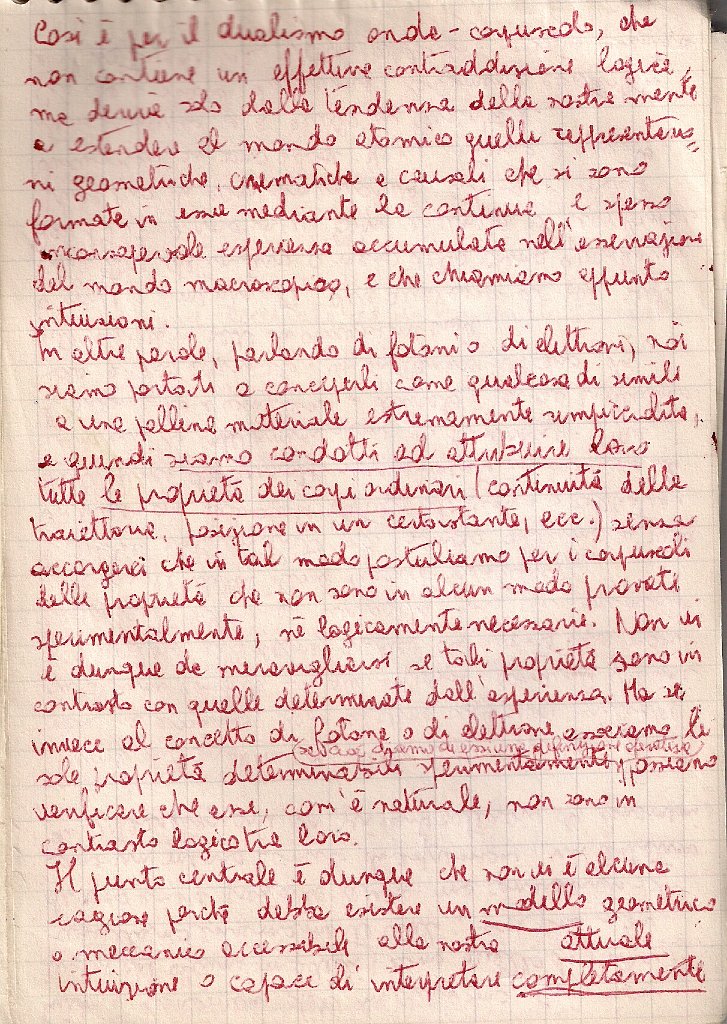 Così è per il dualismo onda-corpuscolo, che
non contiene un effettiva contraddizione logica,
ma deriva solo dalla tendenza della nostra mente
a estendere al mondo atomico quelle rappresentazio=
ni geometriche, cinematiche e causali che si sono
formate in essa mediante la continua e spesso
inconsapevole esperienza accumulata nell'osservazione
del mondo macroscopico, e che chiamiamo appunto
intuizioni.
In altre parole, parlando di fotoni o di elettroni, noi
siamo portati a concepirli come qualcosa di simile
a una pallina materiale estremamente rimpiccolita,
e quindi siamo condotti ad attribuire loro
tutte le proprietà dei corpi ordinari (continuità della
traiettoria, posizione in un certo istante, ecc.) senza
accorgerci che in tal modo postuliamo per i corpuscoli
delle proprietà che non sono in alcun modo provate
sperimentalmente, né logicamente necessarie. Non vi
è dunque da meravigliarsi se tali proprietà sono in
contrasto con quelle determinate dall'esperienza. Ma se
invece al concetto di fotone o di elettrone associamo le
se cioè diamo di essi una definizione operativa
sole proprietà determinabili sperimentalmente, possiamo
verificare che esse, com'è naturale, non sono in
contrasto logico tra loro.
Il punto centrale è dunque che non vi è alcuna
ragione perché debba esistere un modello geometrico
o meccanico accessibile alla nostra attuale
intuizione o capace di interpretare completamente